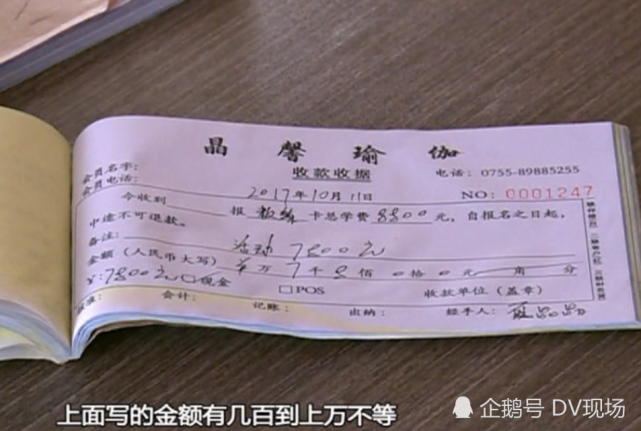 晶馨瑜伽
会员名字:
收款收据
电话: 0755-89885255
会员电话:
2017年10月11日
NO: 0001247
今收到
报 教练 卡总学费 8800 元, 自报名之日起,
中途不可退款。
备注: 活动 7800元
金额 (人民币大写) 万 7 千 8 佰 0 拾 0 元 角 分
¥: 7800元 □现金 □POS 收款单位 (盖章)
会计: 记账: 出纳: 经手人:
上面写的金额有几百到上万不等
企鹅号 DV现场